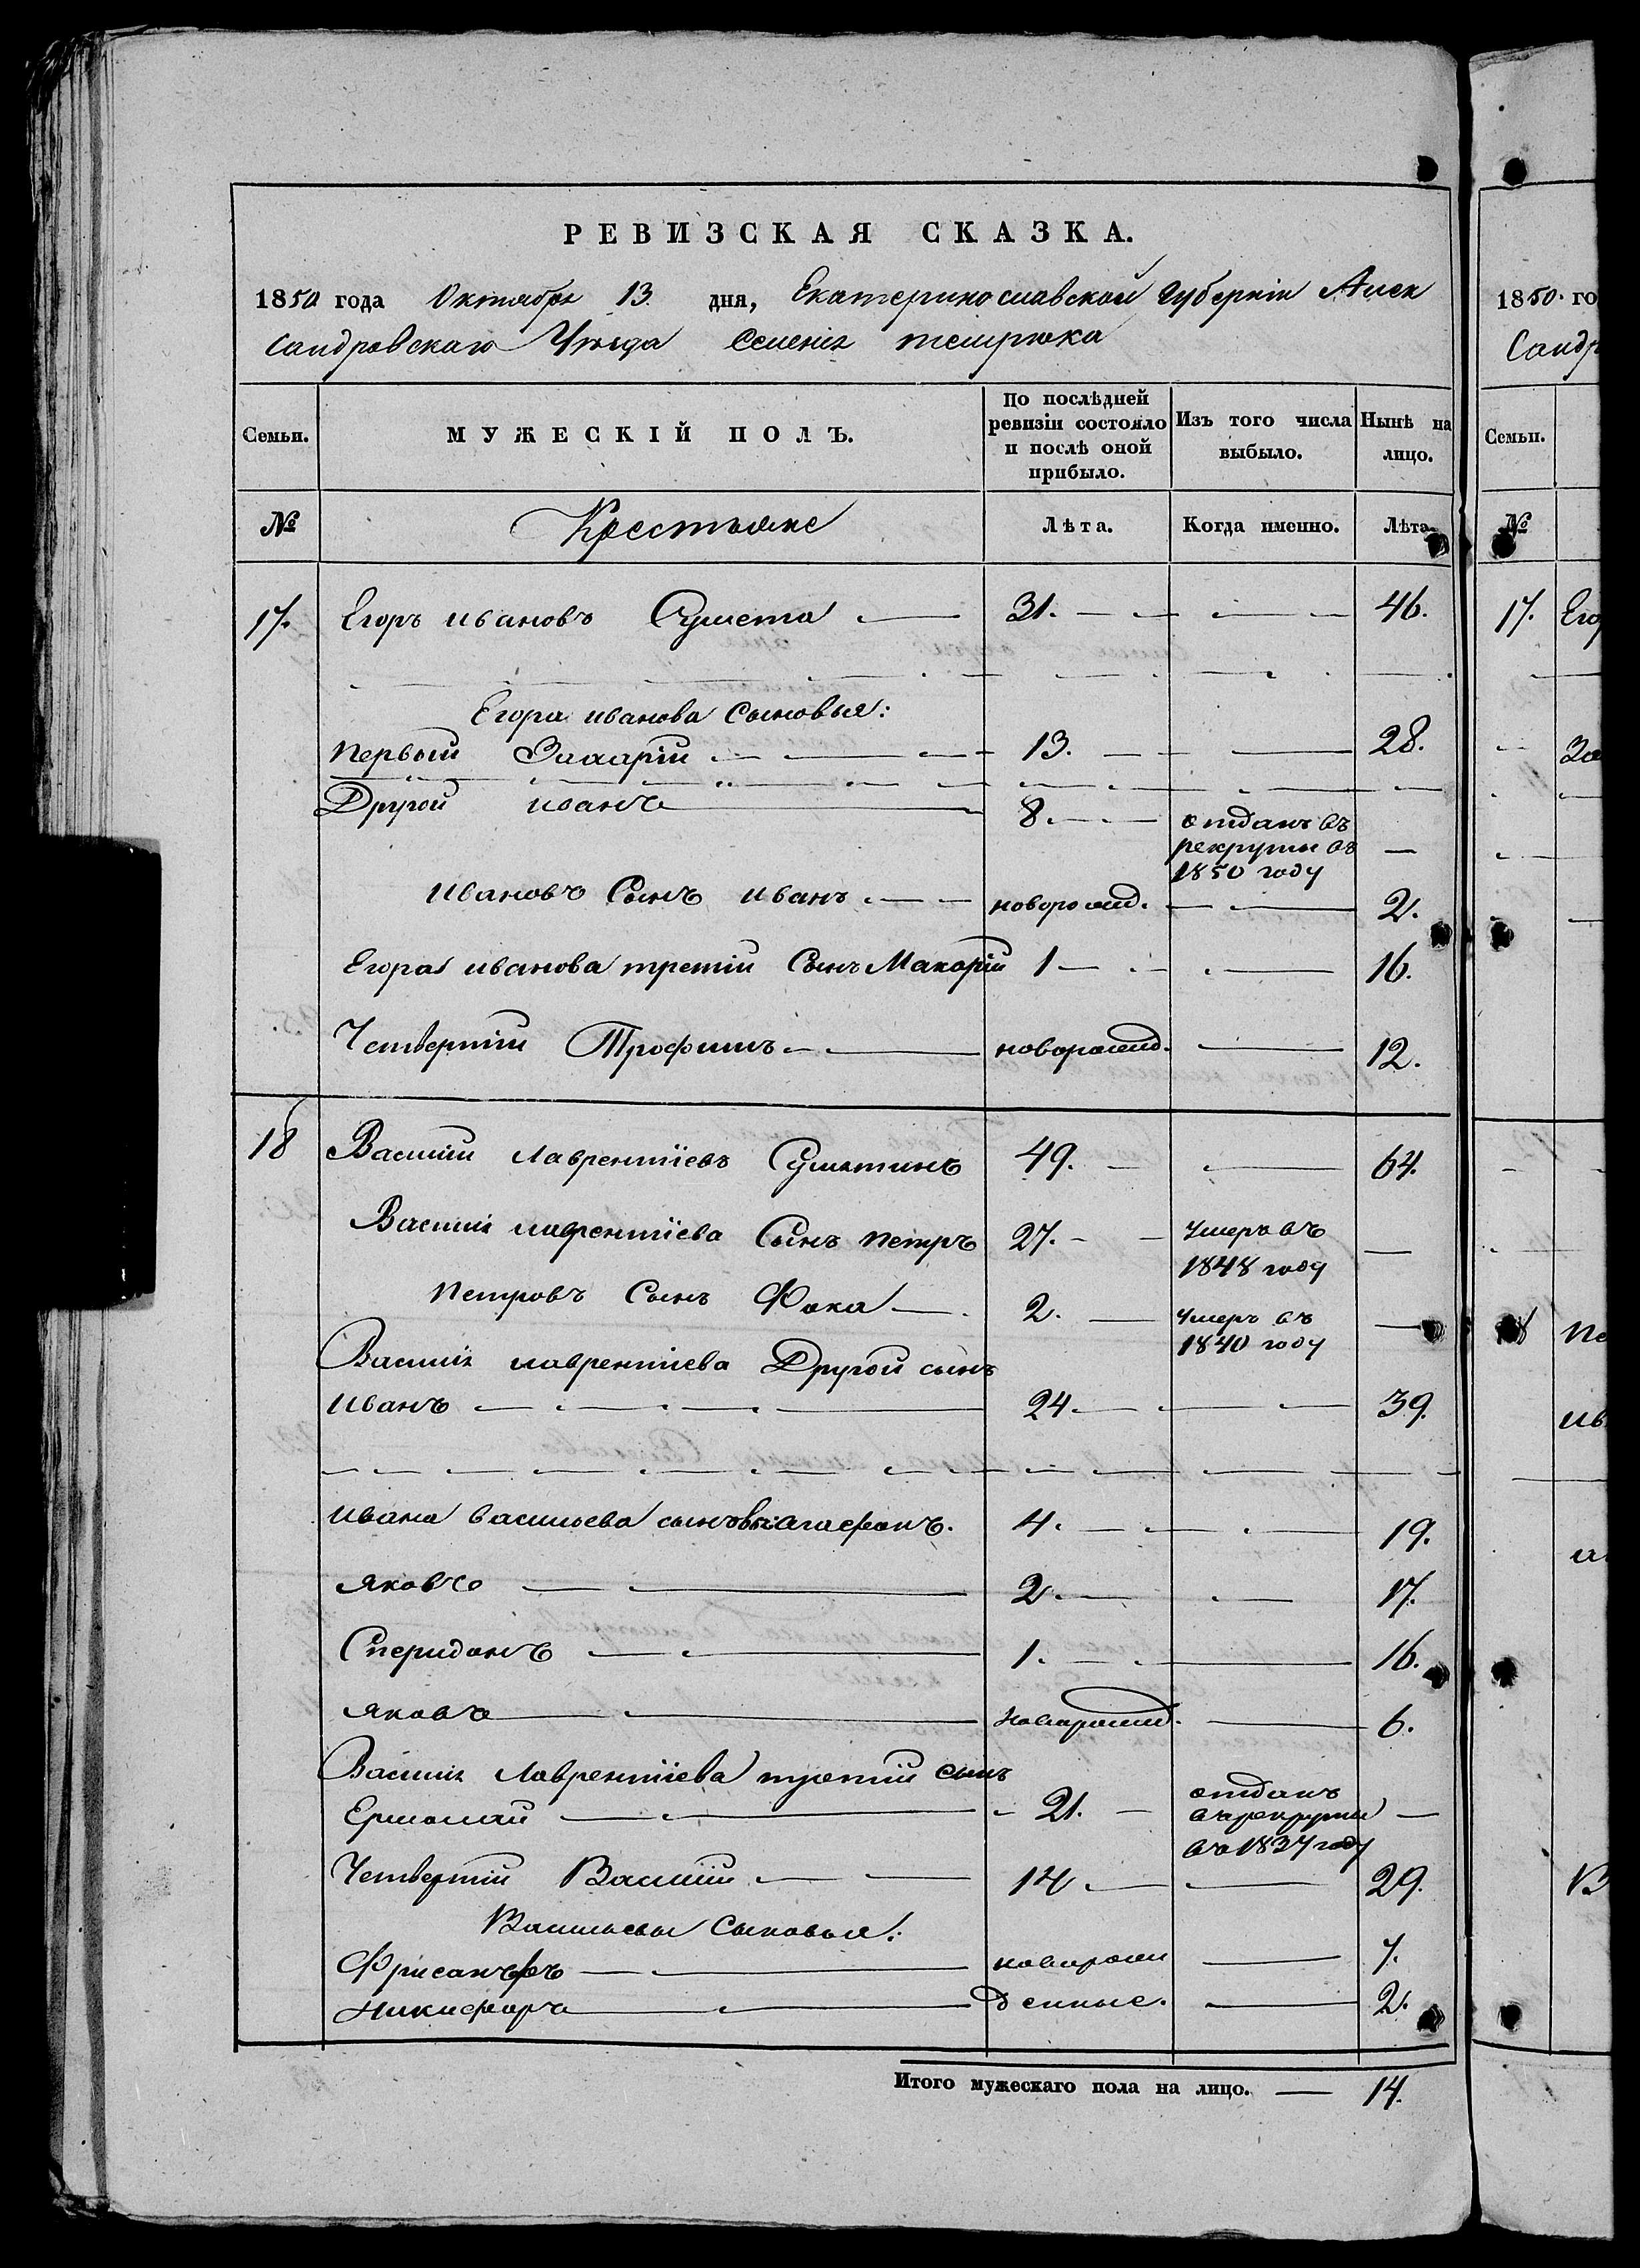 РЕВИЗСКАЯ СКАЗКА.
1850 года Октября 13 дня, Екатеринославской Губерніи Алек
сандровскаго Уезда Селенія темрюка
Семьи. МУЖЕСКІЙ ПОЛЪ. По послѣдней ревизіи состояло и послѣ оной прибыло. Изъ того числа выбыло. Нынѣ на лицо.
№ Крестьяне Лѣта. Когда именно. Лѣта.
17. Егоръ ивановъ 31. 46.
Егора иванова Сыновья:
первый Захарій 13. 28.
Другой иванъ 8. отданъ въ
рекруты въ
1850 году
ивановъ Сынъ иванъ новорожд. 2.
Егора иванова третій Сынъ Макарій 1 16.
Четвертій Трофимъ новорожд. 12.
18 Василій Лаврентіевъ 49. 64.
Василія лаврентіева Сынъ петръ 27. Умеръ въ
1848 году
петровъ Сынъ Фока 2. Умеръ въ
1840 году
Василія лаврентіева Другой сынъ
иванъ 24 39.
ивана васильева сыновья: агафонъ. 4. 19.
яковъ 2. 17.
Сперидонъ 1. 16.
яковъ новорожд. 6.
Василія Лаврентіева третій сынъ
Ермолай 21. отданъ
въ рекруты
въ 1837 году
Четвертій Василій 14 29.
Васильевы Сыновья:
Фрисанъфъ новорож 7.
никифоръ денные. 2.
Итого мужескаго пола на лицо. 14.
1850. го
Сандр
Семьи.
№
17. Его
За
18 пе
ив
В